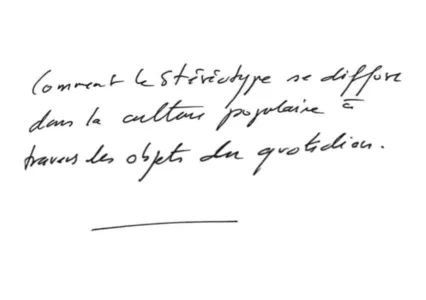 Comment le Stéréotype se diffuse
dans la culture populaire à
travers les objets du quotidien.